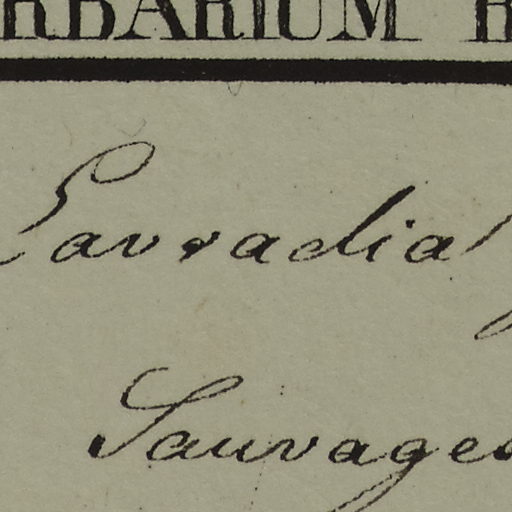 RBARIUM R
Lavradia
Sauvages